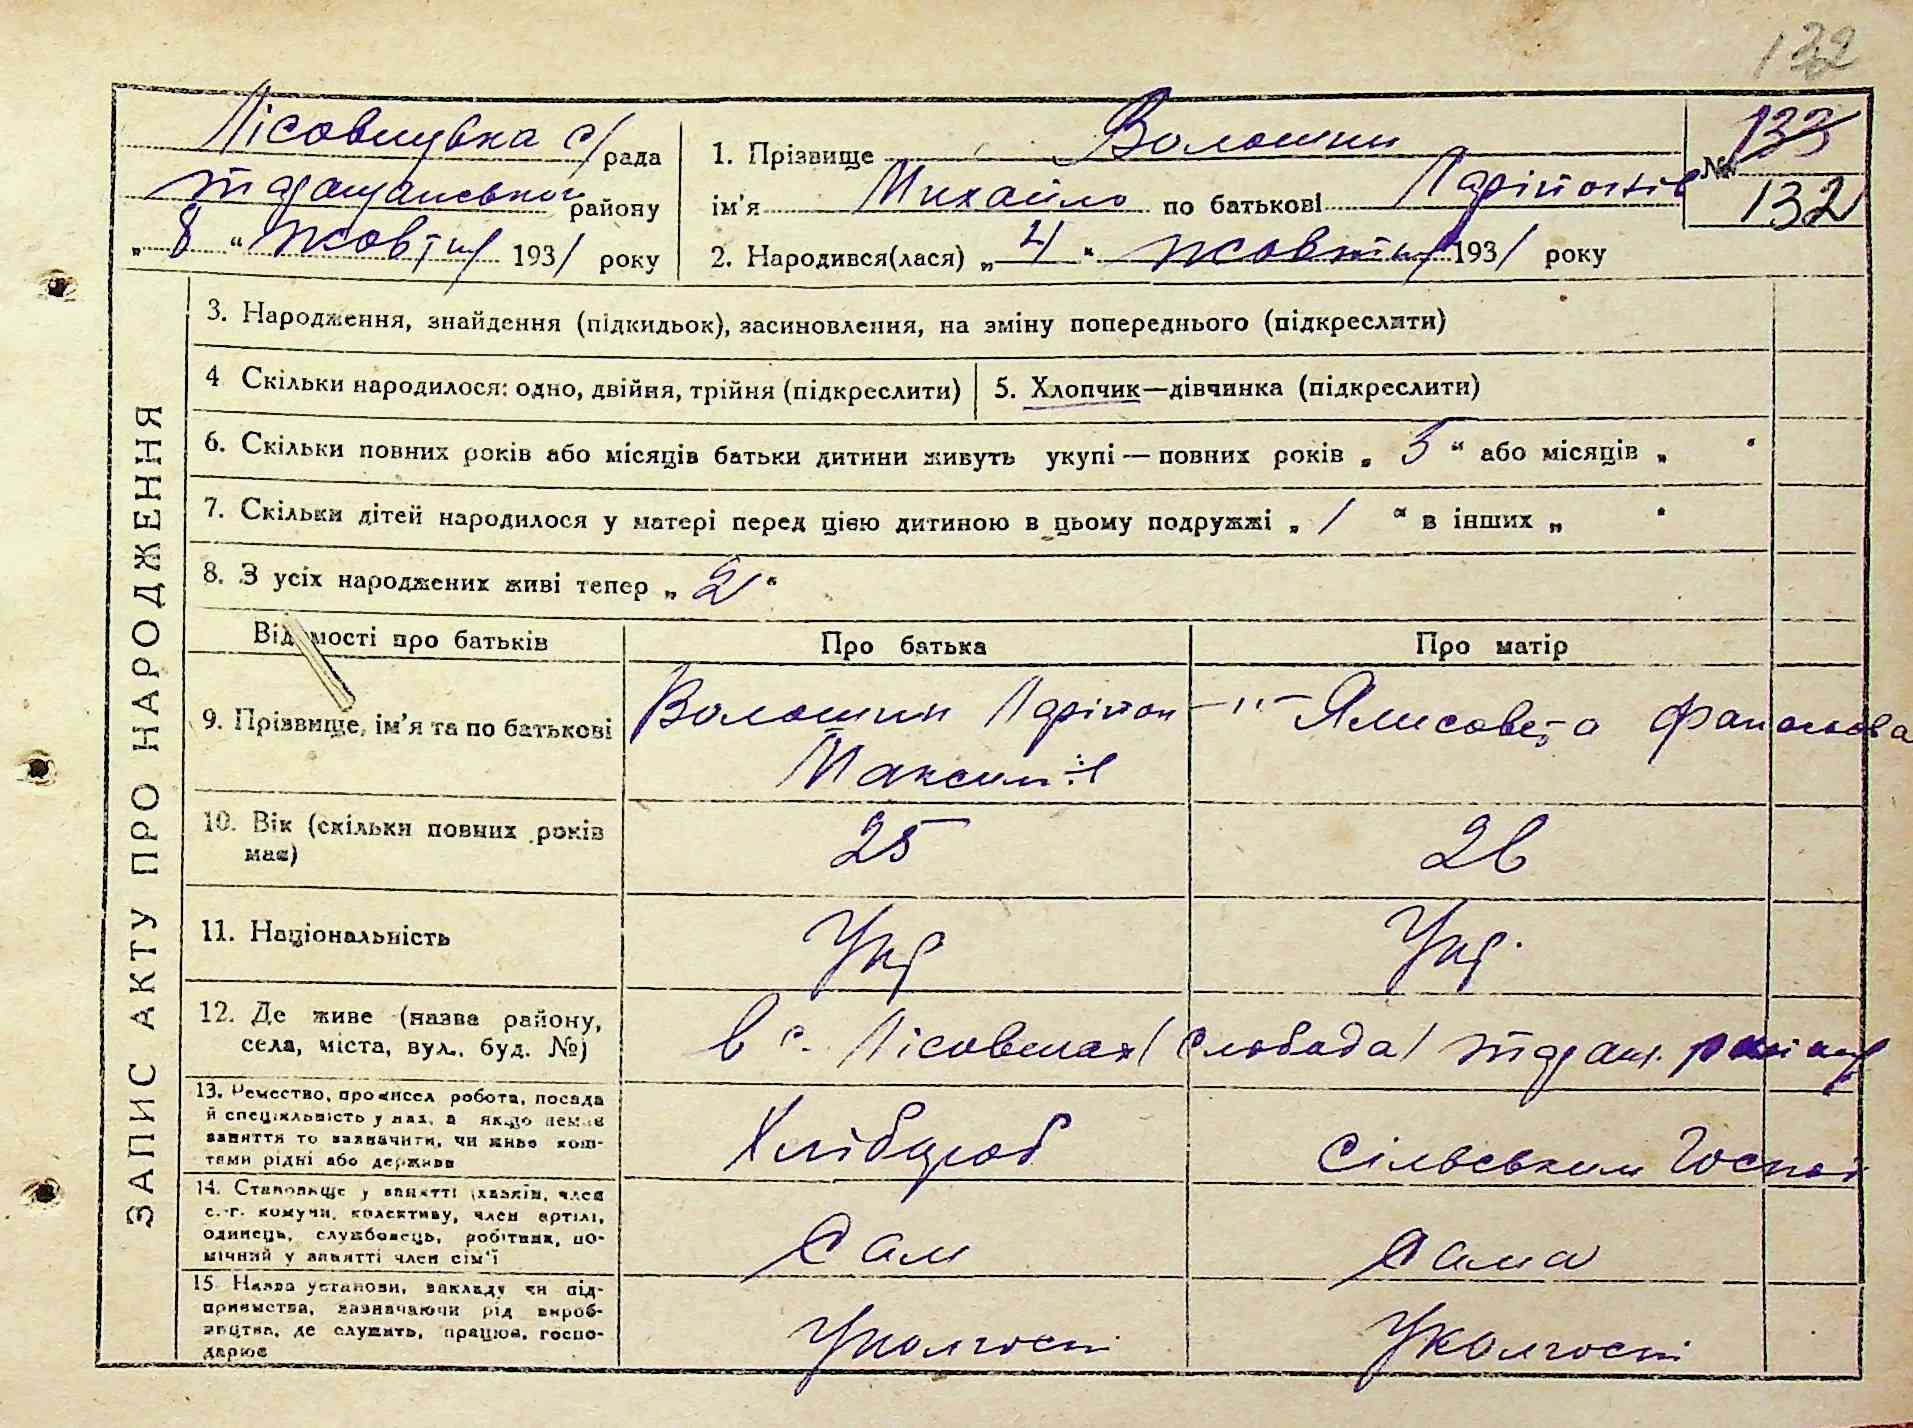 132
Лісовицька с/рада
Таращанського району
„ 8 “ Жовтня 1931 року
1. Прізвище Волошин
ім'я Михайло по батькові Ларіонов
2. Народився(лася) „ “ жовтня 1931 року
№ 133
132
ЗАПИС АКТУ ПРО НАРОДЖЕННЯ
3. Народження, знайдення (підкидьок), засиновлення, на зміну попереднього (підкреслити)
4 Скільки народилося: одно, двійня, трійня (підкреслити)
5. Хлопчик—дівчинка (підкреслити)
6. Скільки повних років або місяців батьки дитини живуть укупі — повних років „ 5 “ або місяців „ “
7. Скільки дітей народилося у матері перед цією дитиною в цьому подружжі „ 1 “ в інших „ “
8. З усіх народжених живі тепер „ 2 “
Відомості про батьків
Про батька
Про матір
9. Прізвище, ім'я та по батькові
Волошин Ларіон
Максимів
—"—
10. Вік (скільки повних років
має)
25
26
11. Національність
Укр
Укр.
12. Де живе (назва району,
села, міста, вул., буд. №)
в с. Лісовичах (слобода) Таращ. району
13. Ремество, промисел робота, посада
й спеціяльність у них, а якщо немає
заняття то зазначити, чи живе кош-
тами рідні або держави
Хлібороб
Сільським Госпо
14. Становище у занятті (хазяїн, член
с.-г. комуни, колективу, член артілі,
одинець, службовець, робітник, по-
мічний у занятті член сім'ї
Сам
Сама
15 Назва установи, закладу чи під-
приємства, зазначаючи рід вироб-
ництва, де служить, працює, госпо-
дарює
У колгоспі
У колгоспі